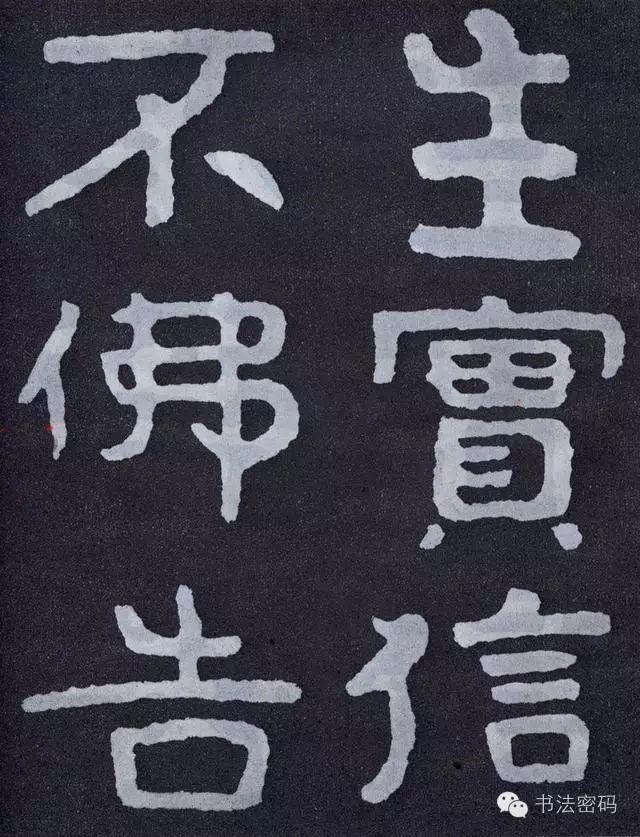 生實信
不佛告
书法密码